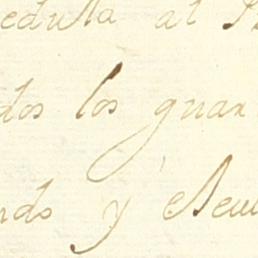 edula al
dos los guar
ndo y